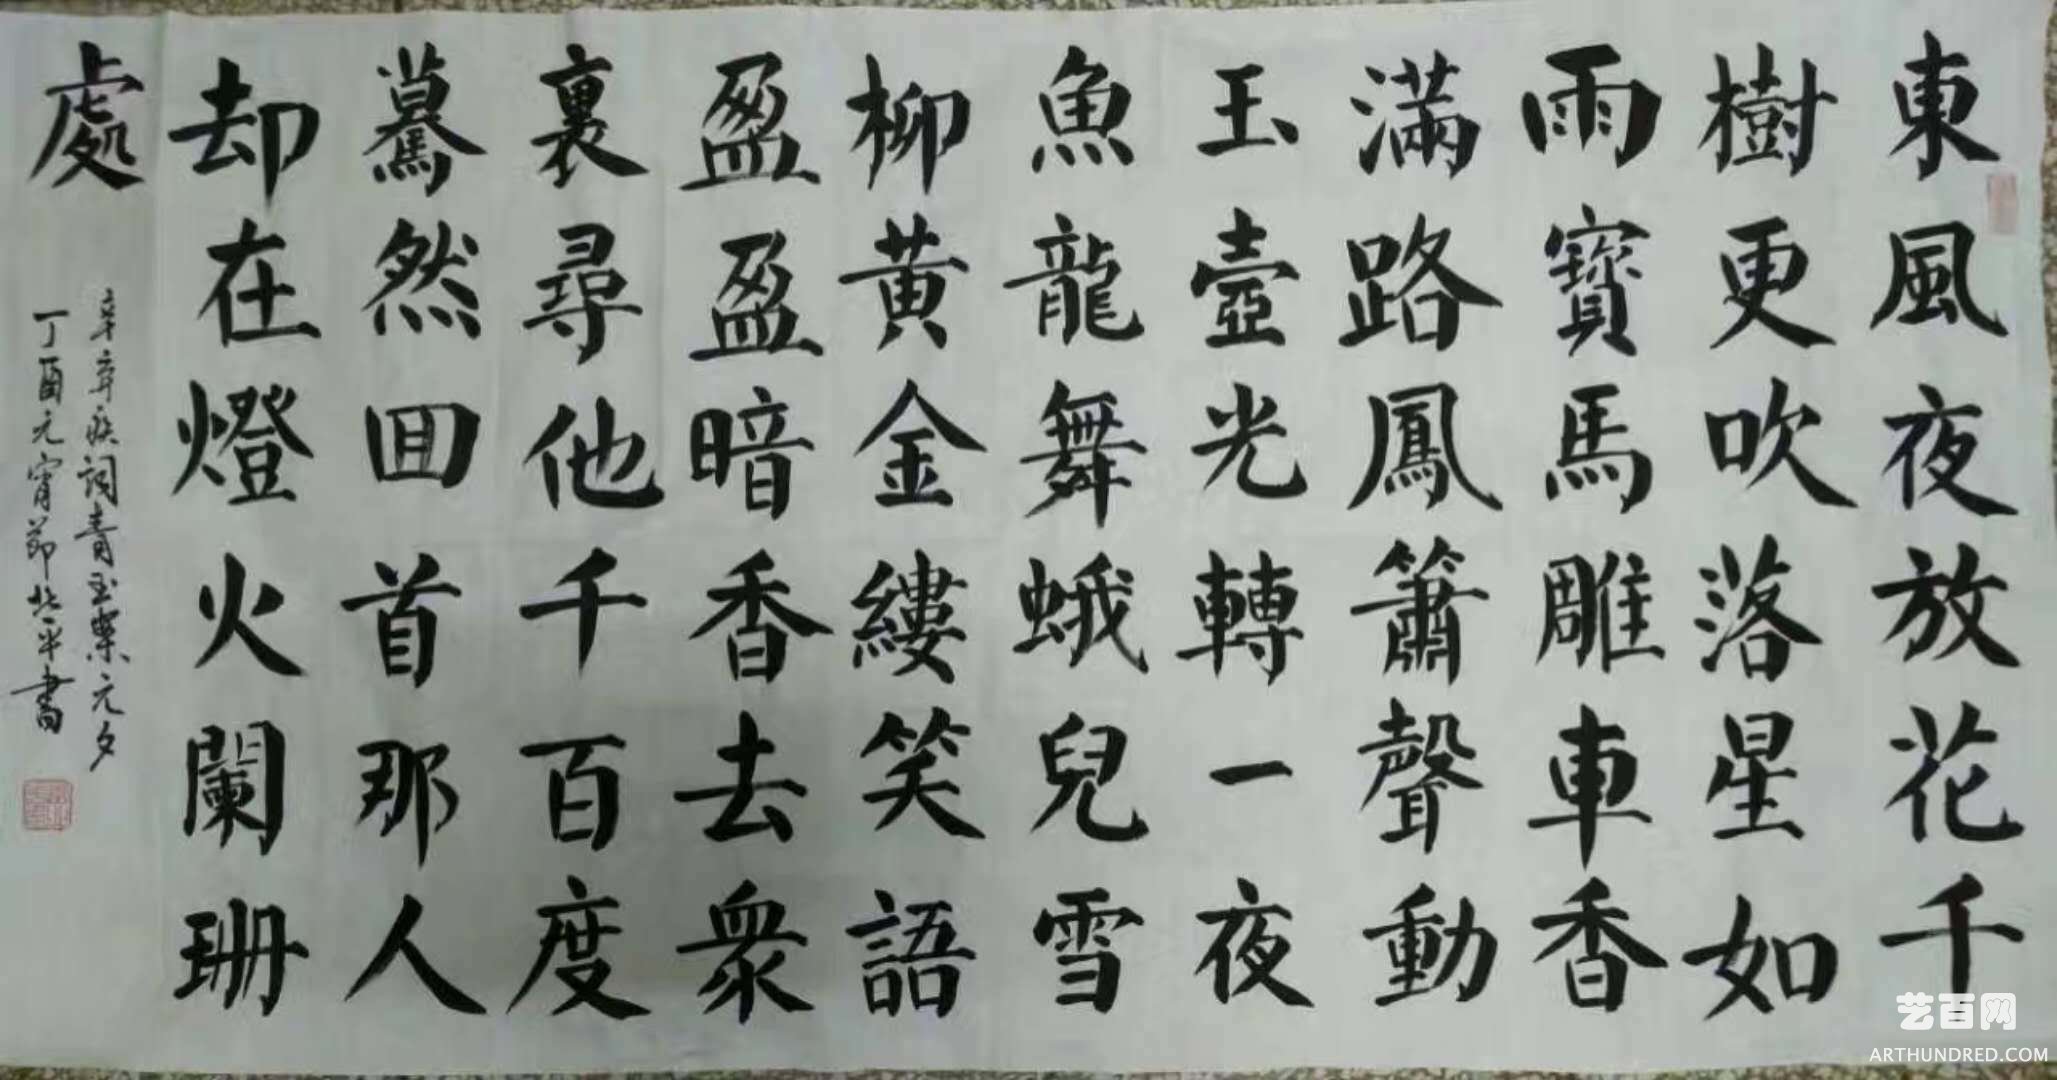 東風夜放花千
樹更吹落星如
雨寶馬雕車香
滿路鳳簫聲動
玉壺光轉一夜
魚龍舞蛾兒雪
柳黃金縷笑語
盈盈暗香去衆
裏尋他千百度
驀然囬首那人
却在燈火闌珊
處
辛弃疾詞青玉案元夕
丁酉元宵節北平書
艺百网
ARTHUNDRED.COM